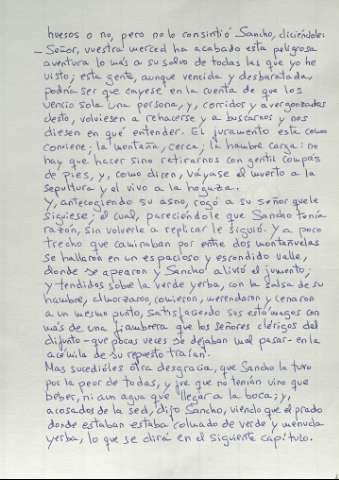 huesos o no, pero no lo consintió Sancho, diciéndole:
– Señor, vuestra merced ha acabado esta peligrosa
aventura lo más a su salvo de todas las que yo he
visto; esta gente, aunque vencida y desbaratada,
podría ser que cayese en la cuenta de que los
venció sola una persona, y, corridos y avergonzados
desto, volviesen a rehacerse y a buscarnos y nos
diesen en qué entender. El jumento está como
conviene; la montaña, cerca; la hambre carga: no
hay que hacer sino retirarnos con gentil compás
de pies, y, como dicen, váyase el muerto a la
sepultura y el vivo a la hogaza.
Y, antecogiendo su asno, rogó a su señor que le
siguiese; el cual, pareciéndole que Sancho tenía
razón, sin volverle a replicar le siguió. Y a poco
trecho que caminaban por entre dos montañuelas
se hallaron en un espacioso y escondido valle,
donde se apearon y Sancho alivió el jumento;
y tendidos sobre la verde yerba, con la salsa de su
hambre, almorzaron, comieron, merendaron y cenaron
a un mesmo punto, satisfaciendo sus estómagos con
más de una fiambrera que los señores clérigos del
difunto – que pocas veces se dejaban mal pasar – en la
acémila de su repuesto traían.
Mas sucedióles otra desgracia, que Sancho la tuvo
por la peor de todas, y fue que no tenían vino que
beber, ni aun agua que llegar a la boca; y,
acosados de la sed, dijo Sancho, viendo que el prado
donde estaban estaba colmado de verde y menuda
yerba, lo que se dirá en el siguiente capítulo.